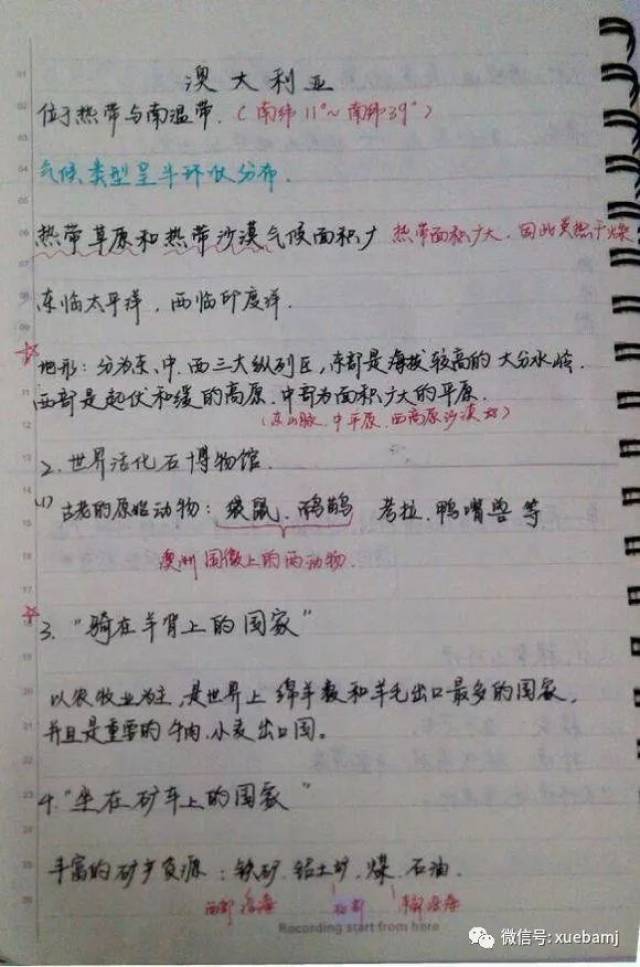 澳大利亚
位于热带与南温带.(南纬11°~南纬39°)
气候类型呈半环状分布.
热带草原和热带沙漠气候面积广 热带面积广大.因此炎热干燥
东临太平洋,西临印度洋.
地形:分为东.中.西三大纵列区,东部是海拔较高的大分水岭.
西部是起伏和缓的高原.中部为面积广大的平原.
(东山脉.中平原.西高原沙漠)
2.世界活化石博物馆.
(1)古老的原始动物:袋鼠.鸸鹋 考拉.鸭嘴兽等
澳洲国徽上的两动物.
3."骑在羊背上的国家"
以农牧业为主,是世界上绵羊数和羊毛出口最多的国家,
并且是重要的牛肉.小麦出口国。
4."坐在矿车上的国家"
丰富的矿产资源:铁矿.铝土矿.煤.石油.
西部
Recording start from here
微信号: xuebamj